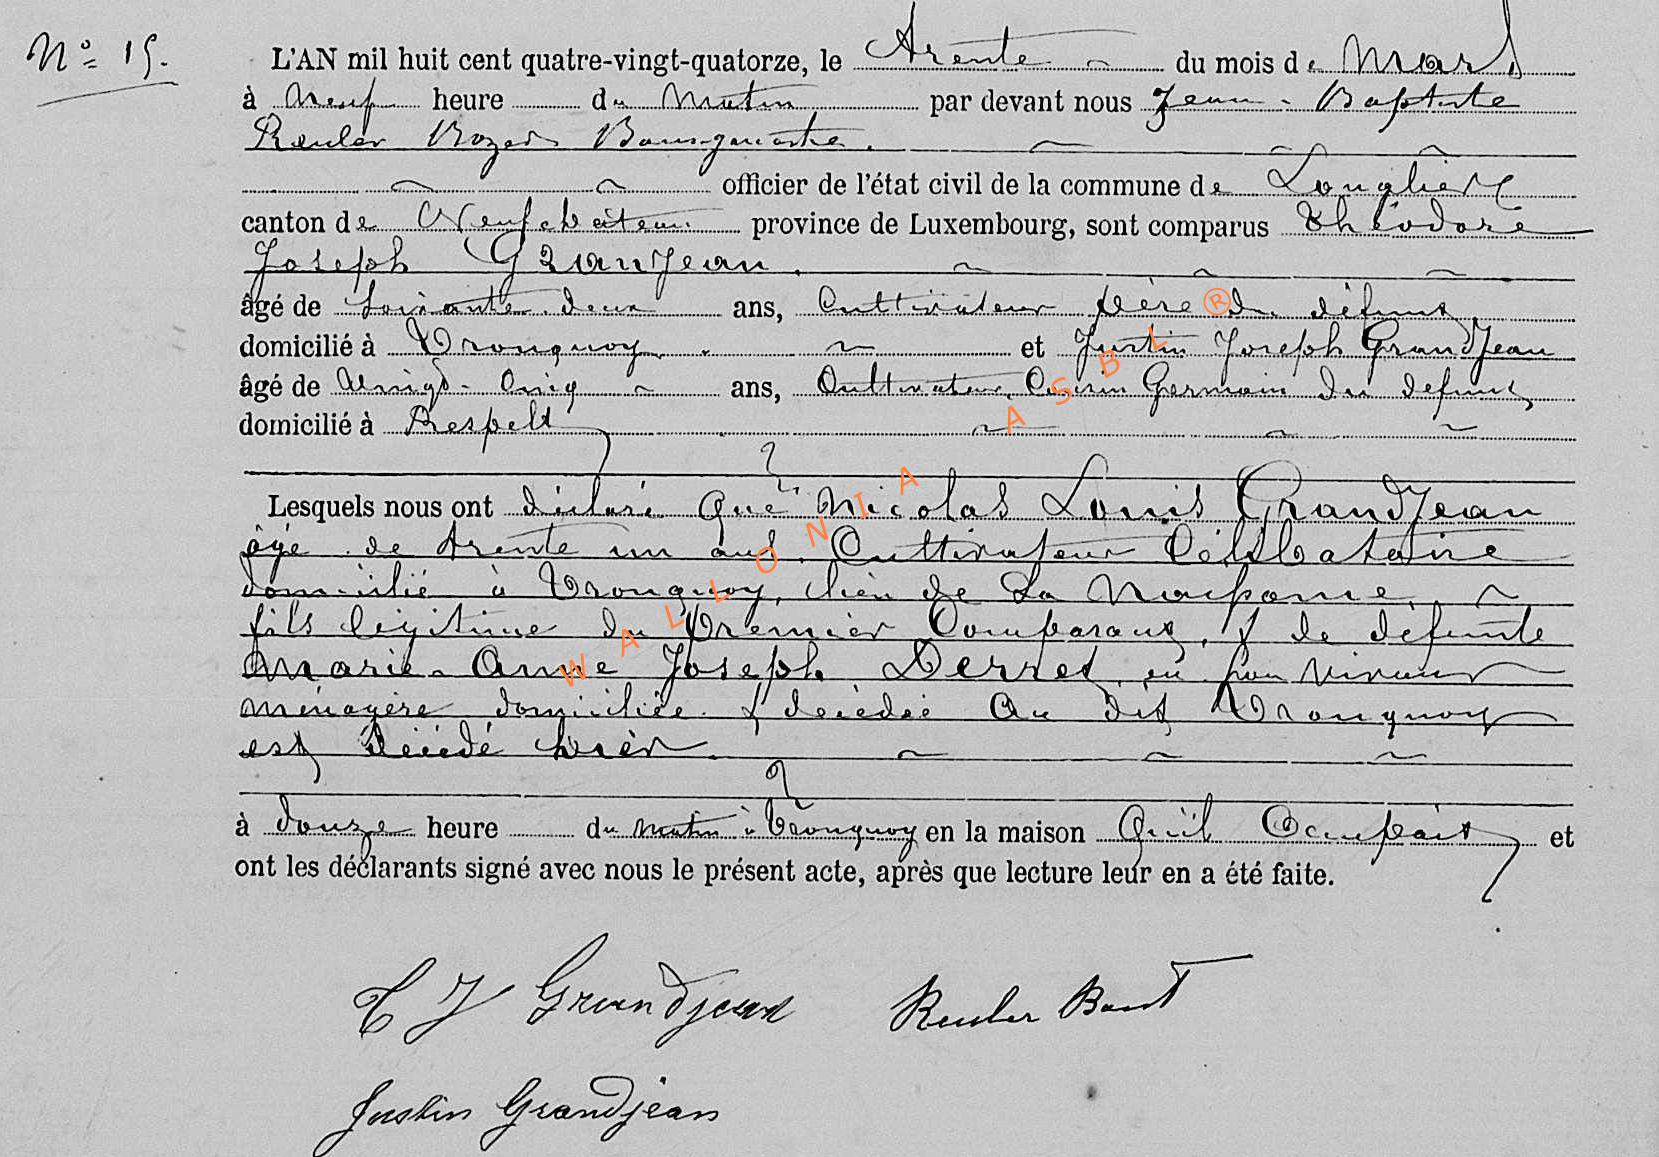 N° 15.
L'AN mil huit cent quatre-vingt-quatorze, le trente du mois de Mars
à Neuf heure du Matin par devant nous Jean-Baptiste
Reuler
officier de l'état civil de la commune de Longlier
canton de Neufchâteau province de Luxembourg, sont comparus Théodore
Joseph GrandJean.
âgé de soixante-deux ans, Cultivateur père du défunt
domicilié à Tronquoy. et Justin Joseph GrandJean
âgé de Vingt-Cinq ans, Cultivateur, Cousin Germain du défunt,
domicilié à Respelt
Lesquels nous ont déclaré que Nicolas Louis GrandJean
âgé de trente un ans, Cultivateur Célibataire
domicilié à Tronquoy, lieu de sa
fils légitime du Premier Comparant, & de défunte
Marie-Anne Joseph en son vivant
ménagère domiciliée & décédée au dit Tronquoy
est décédé hier
à douze heure du matin à Tronquoy en la maison qu'il occupait et
ont les déclarants signé avec nous le présent acte, après que lecture leur en a été faite.
T J Grandjean Reuler
Justin Grandjean
WALLONIA ASBL ®